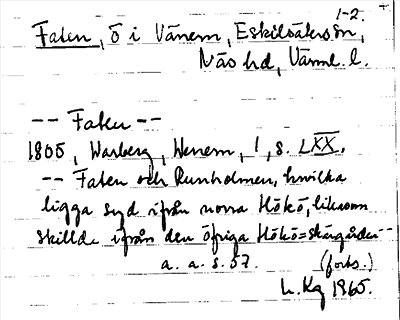 1-2.
Faten, ö i Vänern, Eskilsäters sn,
Näs hd, Värml. l.
-- Faten --
1805, Warberg, Wenern, 1, s. LXX.
-- Faten och Runholmen, hvilka
ligga syd ifrån norra Hökö, liksom
skillde ifrån den öfriga Hökö=skärgården --
a. a. s. 57. (forts.)
L. Kg 1965.